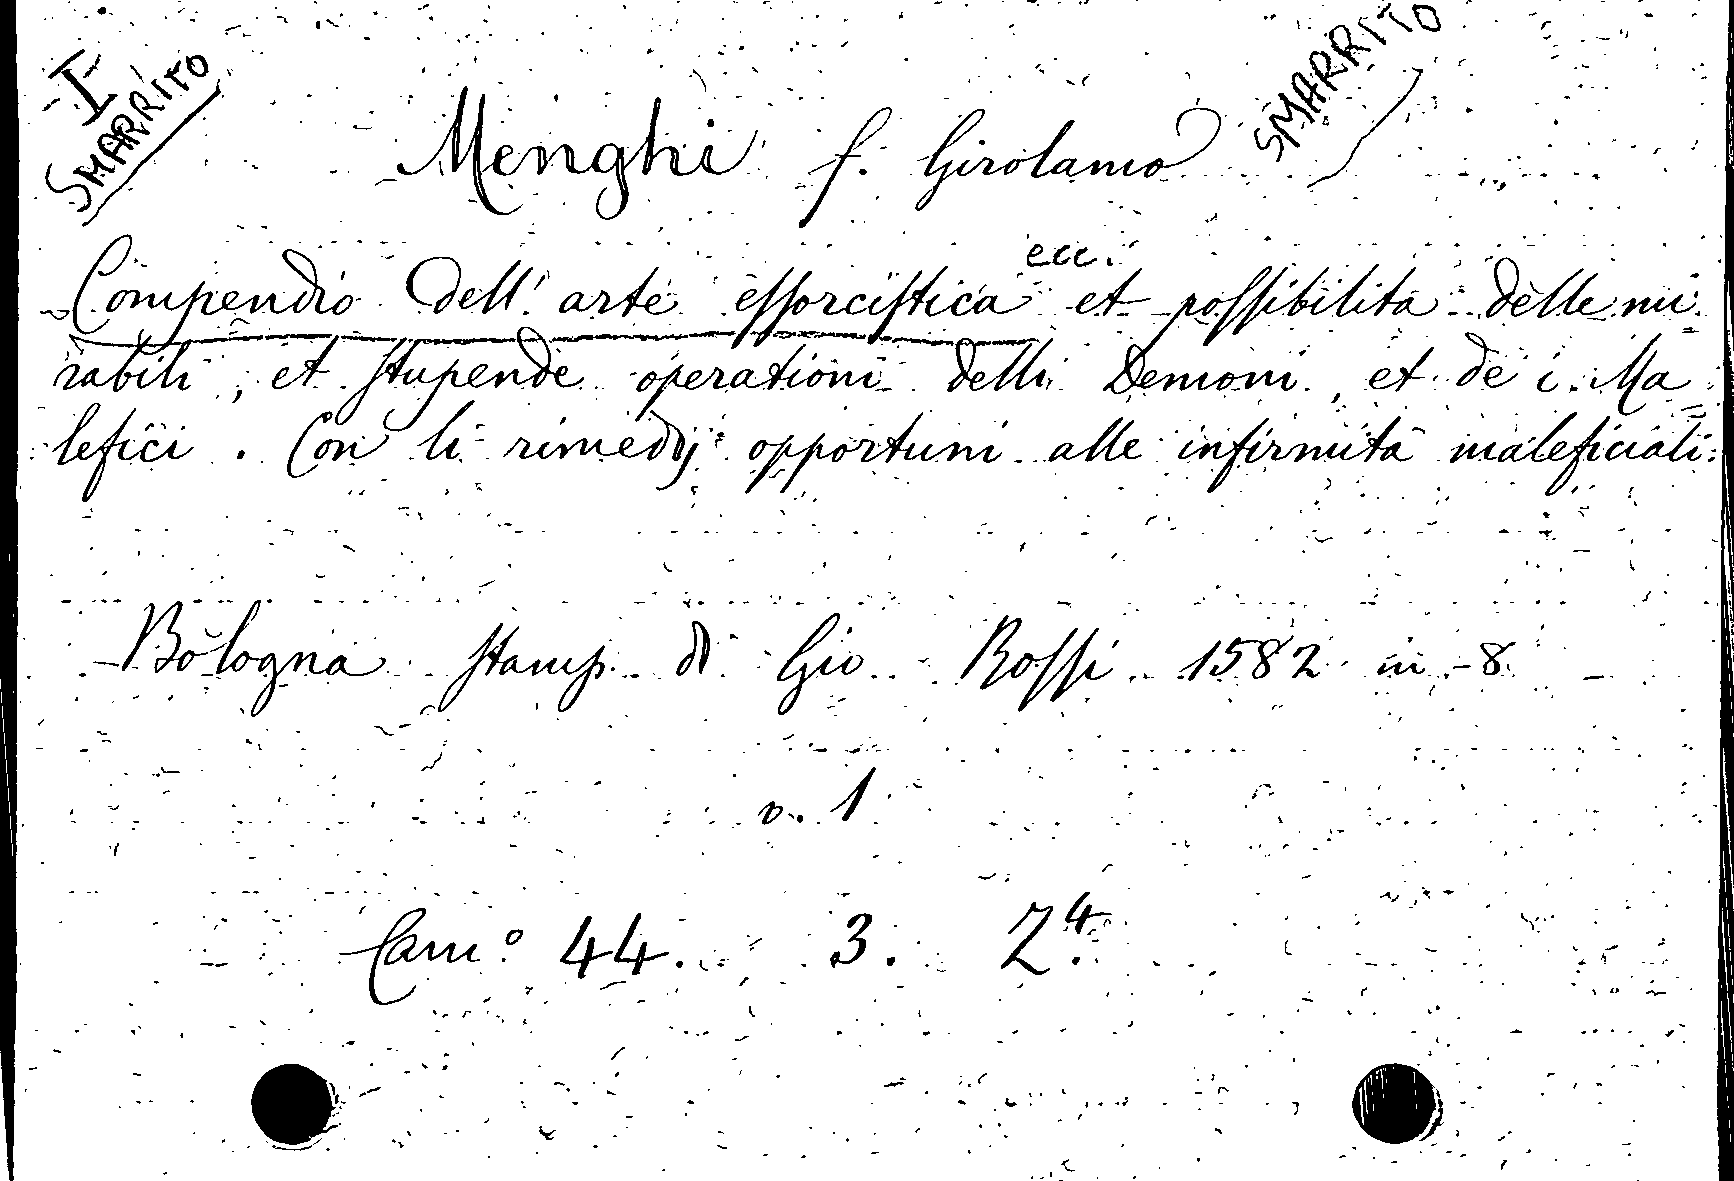 I
SMARRITO
SMARRITO
Menghi f. Girolamo
ecc.
Compendio dell' arte essorcistica et possibilita delle mi
rabili, et stupende operationi delli Demoni, et de i Ma
lefici. Con li rimedij opportuni alle infirmità maleficiali.
Bologna stamp. di Gio Rossi 1582 in 8
v. 1
Cam.º 44. 3. 24.